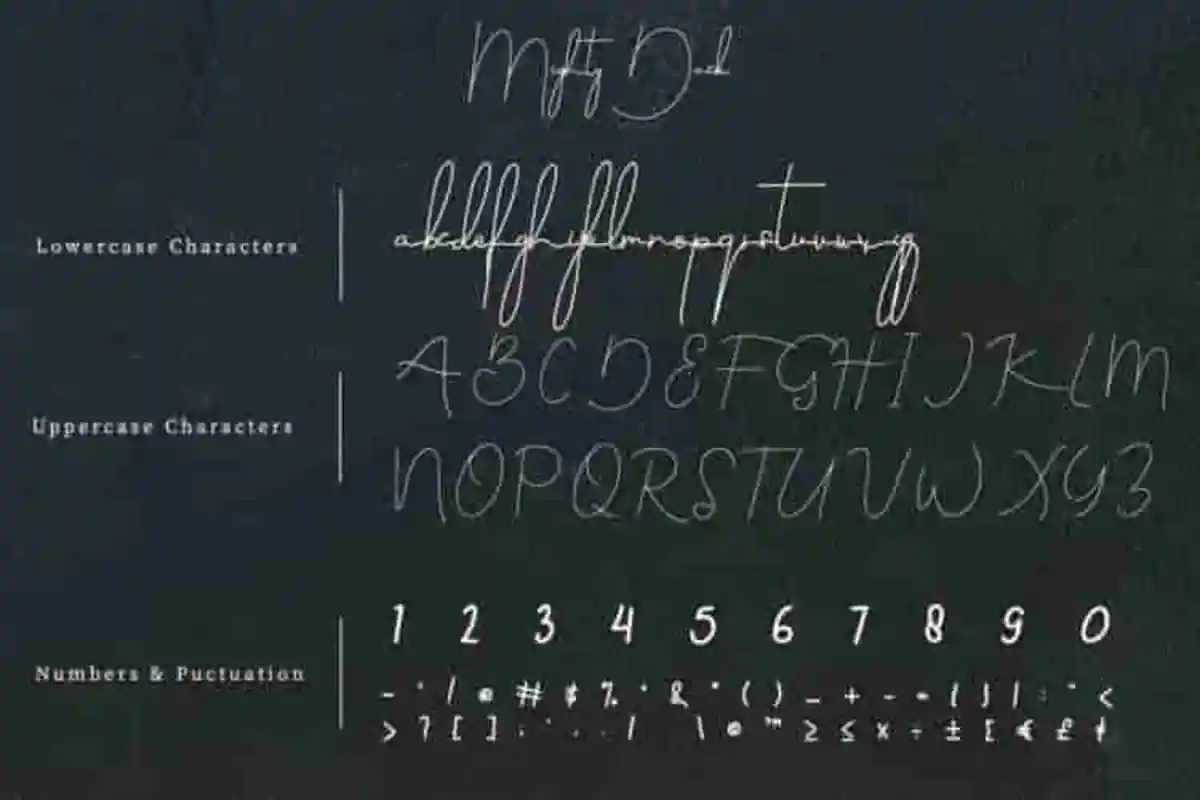 Mighty Duck
Lowercase Characters
abcdefghijklmnopqrstuvwxyz
Uppercase Characters
ABCDEFGHIJKLM
NOPQRSTUVWXYZ
Numbers & Puctuation
1 2 3 4 5 6 7 8 9 0
# $ % & ( ) _ + - = { } | : " <
> ? [ ] ; ' , . / \ ™ ≥ ≤ × ÷ ±